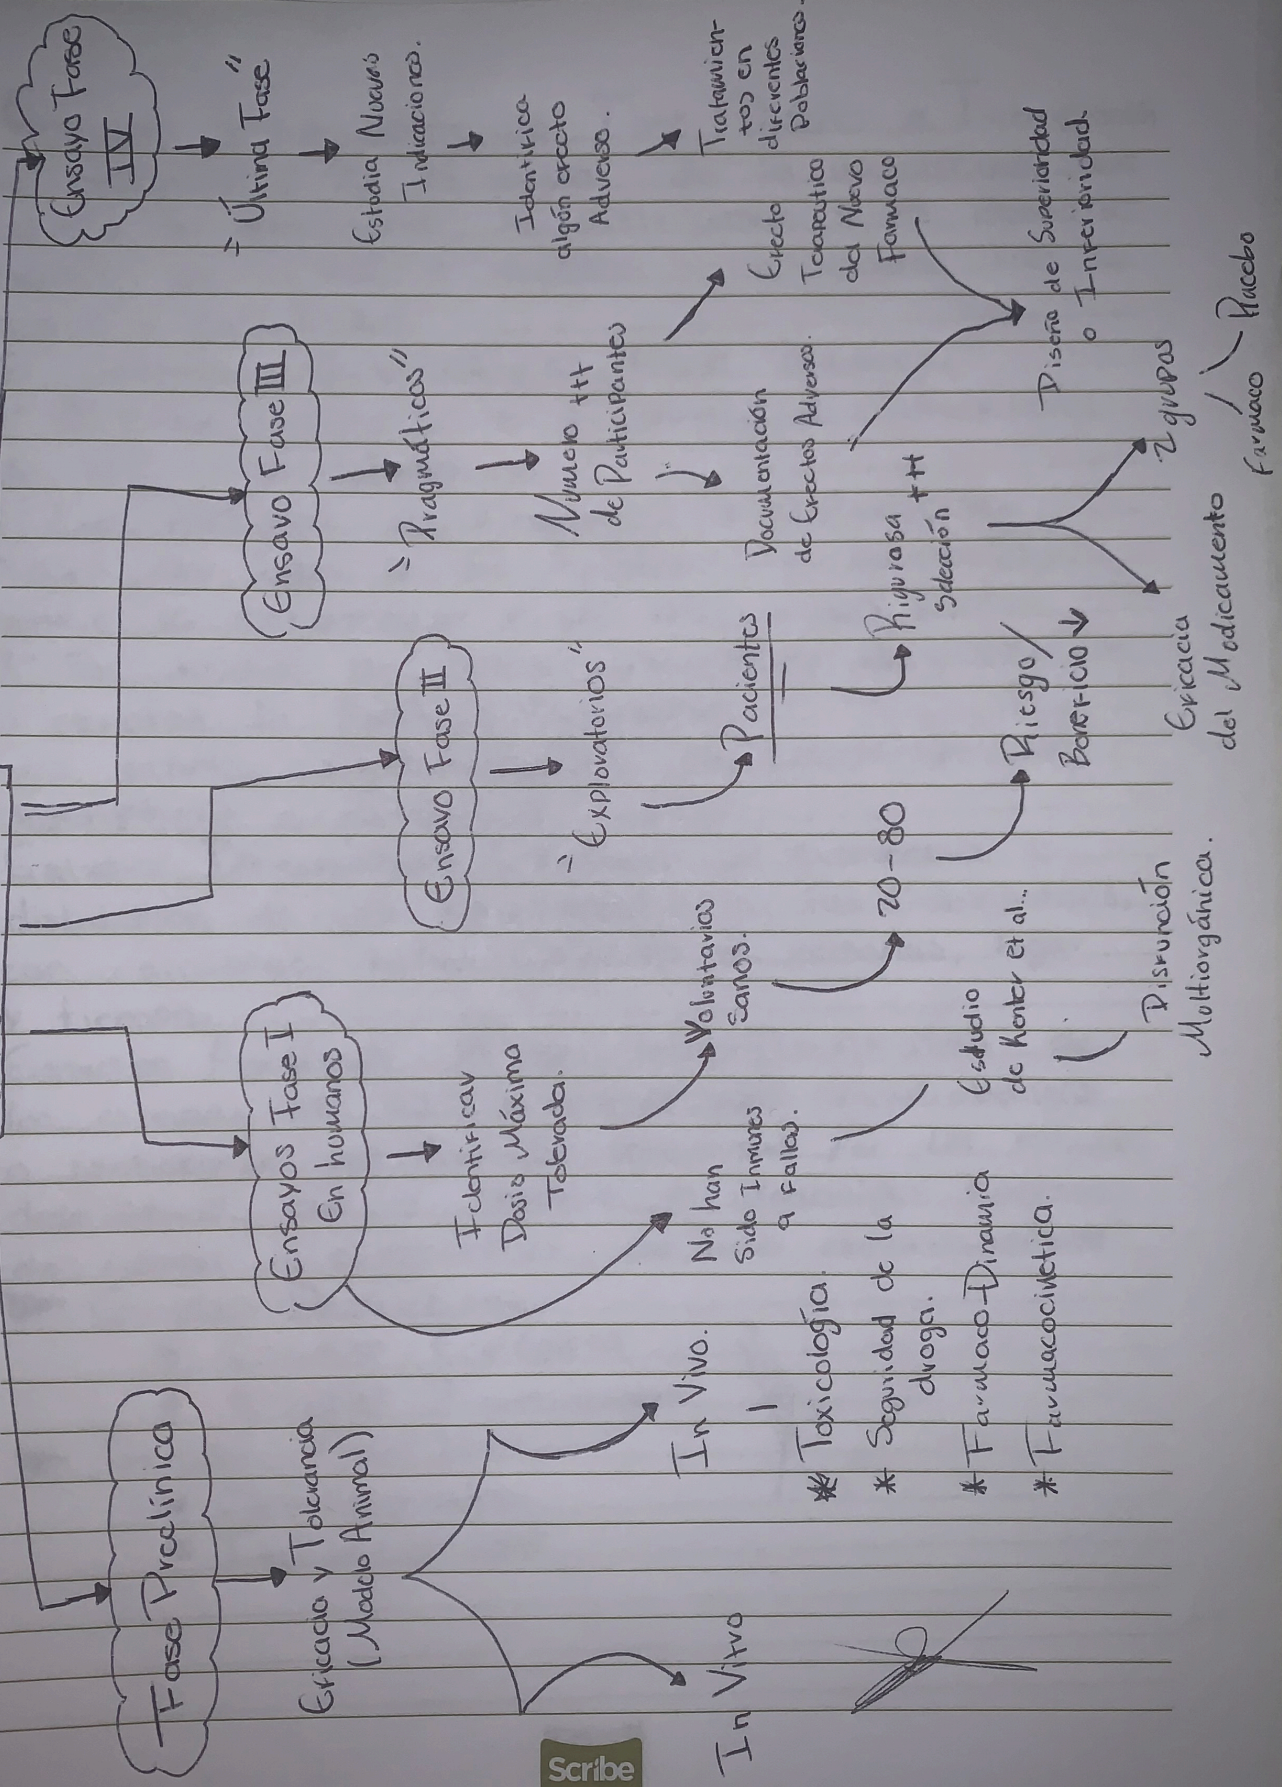 Fase Preclínica
Eficacia y Tolerancia
(Modelo Animal)
In Vitro
In Vivo.
* Toxicología.
* Seguridad de la
droga.
* Farmaco-Dinamia
* Farmacocinetica.
Ensayos Fase I
En humanos
Identificar
Dosis Máxima
Tolerada.
No han
Sido Inmunes
a Fallas.
Estudio
de Kenter et al...
Disfunción
Multiorgánica.
Voluntarios
Sanos.
20-80
Riesgo/
Beneficio ↓
Ensayo Fase II
"Exploratorios"
Pacientes
Rigurosa
Selección +++
Eficacia
del Medicamento
2 grupos
Farmaco
Placebo
Ensayo Fase III
"Pragmáticos"
Número +++
de Participantes
Documentación
de Efectos Adversos.
Efecto
Terapéutico
del Nuevo
Farmaco
Diseño de Superioridad
o Inferioridad.
Ensayo Fase
IV
"Última Fase"
Estudia Nuevas
Indicaciones.
Identifica
algún efecto
Adverso.
Tratamien-
tos en
diferentes
Poblaciones.
Scribe